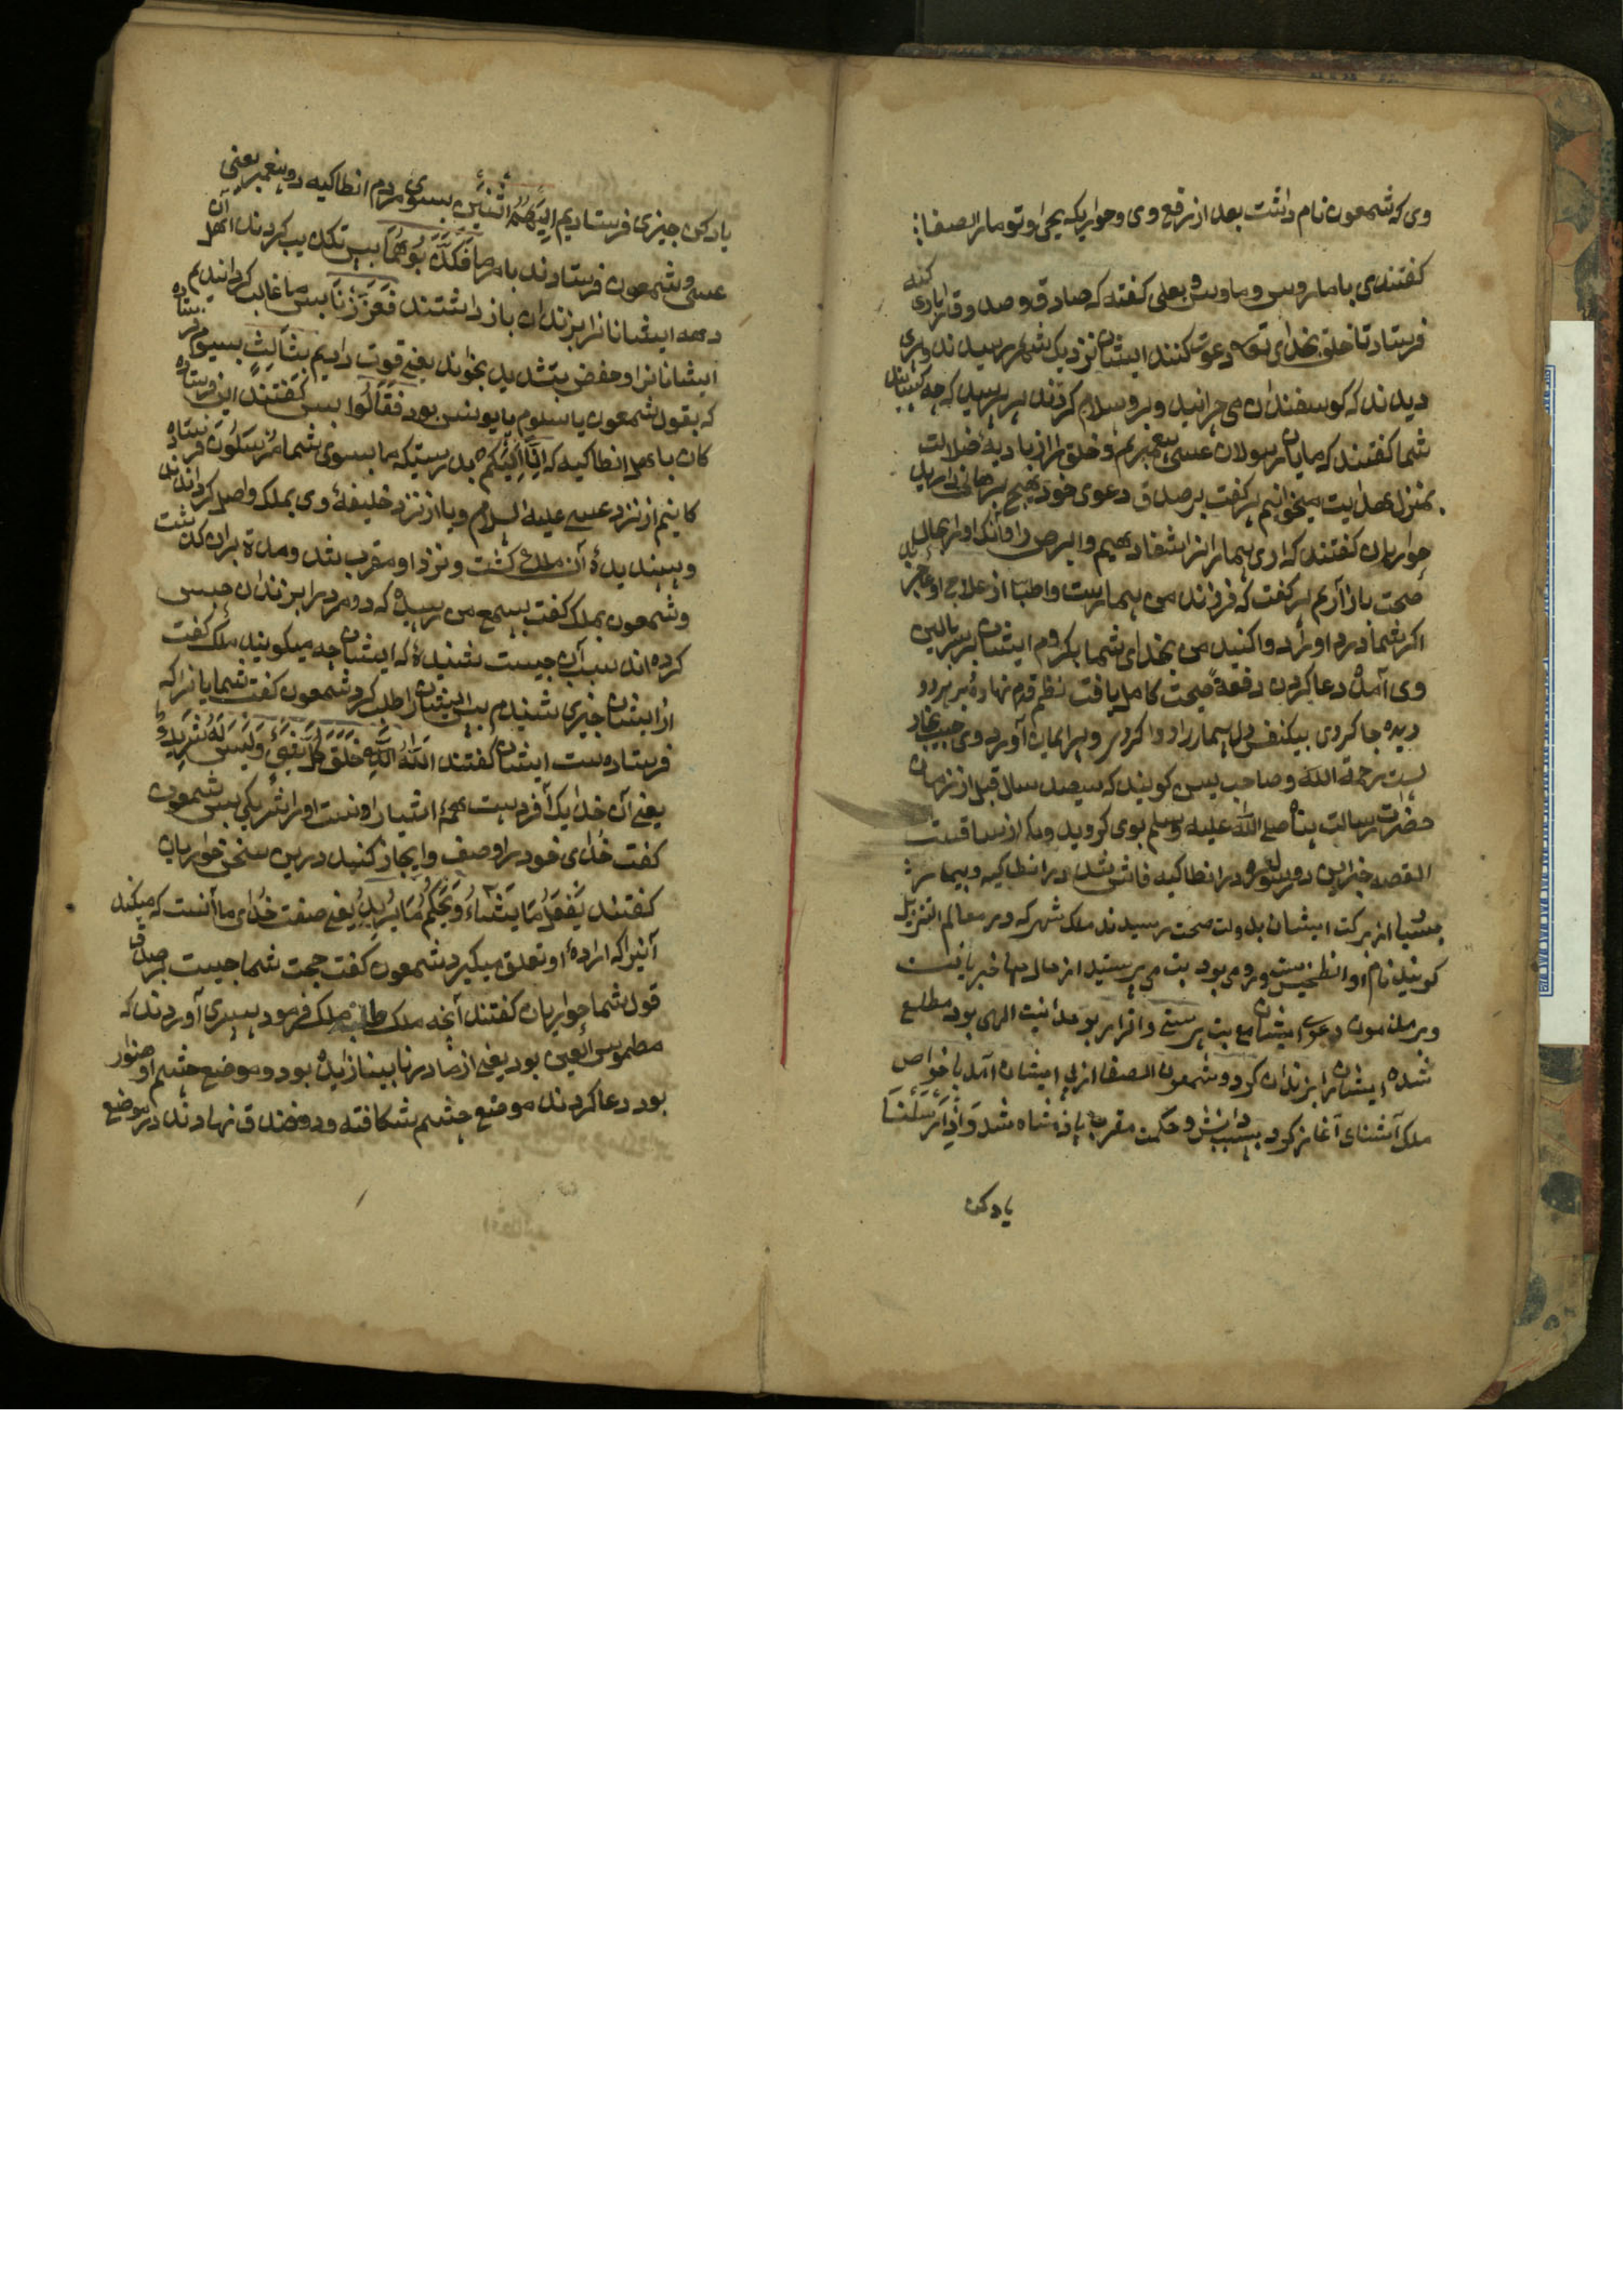 وی که شمعون نام داشت بعد از رفع وی و حواریکه یحیی و توما را الصفا
کفتندی یا ماروس و ماوس و بعلی کفته که صادق و صدوق را بادی کنبه
فرستاد تا خلق بخدای تع دعوت کنند ایشان نزدیک شهر رسیدند و پیری
دیدند که کوسفندان می چرانید و برو سلام کردند پیر پرسید که چه کسانید
شما کفتند که مایان رسولان عیسی پیغمبریم و خلق را از بادیهٔ ضلالت
بمنزل هدایت میخوانیم پیر کفت بر صدق دعوی خود هیچ برهانی دارید
حواریان کفتند که اری بیمارانرا شفا دهیم و ابرص را و انکه او را بحال
صحت باز آریم پیر کفت که فرزند من بیمارست و اطبا از علاج او عاجز
اکر شما درد او را دوا کنید من بخدای شما بکروم ایشان بر سر بالین
وی آمده دعا کردن دفعهً صحت کامل یافت نظم قدم نهاده بر سر دو
دیده جا کردی بیکنفس دل بیمار را دوا کردی و پیر ایمان آورد وی حبیب نجار
بست رحمة الله و صاحب یس کویند که سیصد سال قبل از زمان
حضرت رسالت پناه صلی الله علیه وسلم بوی کروید و از سباقست
القصه خبر این دو رسول در انطاکیه فاش شد در انطاکیه و بیمار
بسیار از برکت ایشان بدولت صحت رسیدند ملک شهر که در معالم التنزیل
کویند نام او انطیخس و رومی بود بت می پرستید از حال خبر یافت
و بر مضمون دعوی ایشان منع بت پرستی و اقرار بوحدانیت الهی بود مطلع
شده ایشان را بزندان کرد و شمعون الصفا از پی ایشان آمد با خواص
ملک آشنای آغاز کرد بسبب دانش و حکمت مقرب پادشاه شد وَاِذْ اَرْسَلْنَا
یاد کن
یاد کن چیزی فرستادیم اِلَیْهِمُ اثْنَیْنِ بسوی مردم انطاکیه دو پیغمبر یعنی
عیسی و شمعون فرستادند بامر ما فَکَذَّبُوهُمَا پس تکذیب کردند اهل آن
دهه ایشانانرا بزندان باز داشتند فَعَزَّزْنَا پس ما غالب کردانیدیم
ایشانانرا و حفص بتشدید بخواند یعنی قوت دادیم بِثَالِثٍ بسیوم فرستاده
که بقول شمعون یا سلوم یا یونس بود فَقَالُوا پس کفتند این فرستاده
کان با اهل انطاکیه که اِنَّا اِلَیْکُمْ بدرستیکه ما بسوی شما مُرْسَلُونَ فرستاده
کانیم از نزد عیسی علیه السلام و یا از نزد خلیفهٔ وی بملک واصل کردانیدند
و پسندیدهٔ آن ملک کشت و نزد او مقرب شد و مدة بران کذشت
و شمعون بملک کفت بسمع من رسیده که دو مرد را بزندان حبس
کرده اند سبب آن چیست شنیدهٔ که ایشان چه میکویند ملک کفت
از ایشان خبری شنیدم پس ایشان را طلب کرد شمعون کفت شمایانرا که
فرستاده ست ایشان کفتند اَللهُ الَّذِی خَلَقَ کُلَّ شَیْءٍ وَلَیْسَ لَهُ شَرِیكٌ
یعنی آن خدایک آفریدست همهٔ اشیارا و نیست او را شریکی پس شمعون
کفت خدای خود را وصف و ایجاز کنید درین سخن حواریان
کفتند یَفْعَلُ مَا یَشَاءُ وَیَحْکُمُ مَا یُرِیدُ یعنی صفت خدای ما آنست که میکند
آنچیرا که ارادهٔ او تعلق میکیرد شمعون کفت حجت شما چیست بر صدق
قول شما حواریان کفتند آنچه ملک طلبد ملک فرمود پسری آوردند که
مطموس العین بود یعنی از مادر نابینا زایده بود و موضع چشم او هنوار
بود دعا کردند موضع چشم بشکافته و دو فندق نهادند در موضع